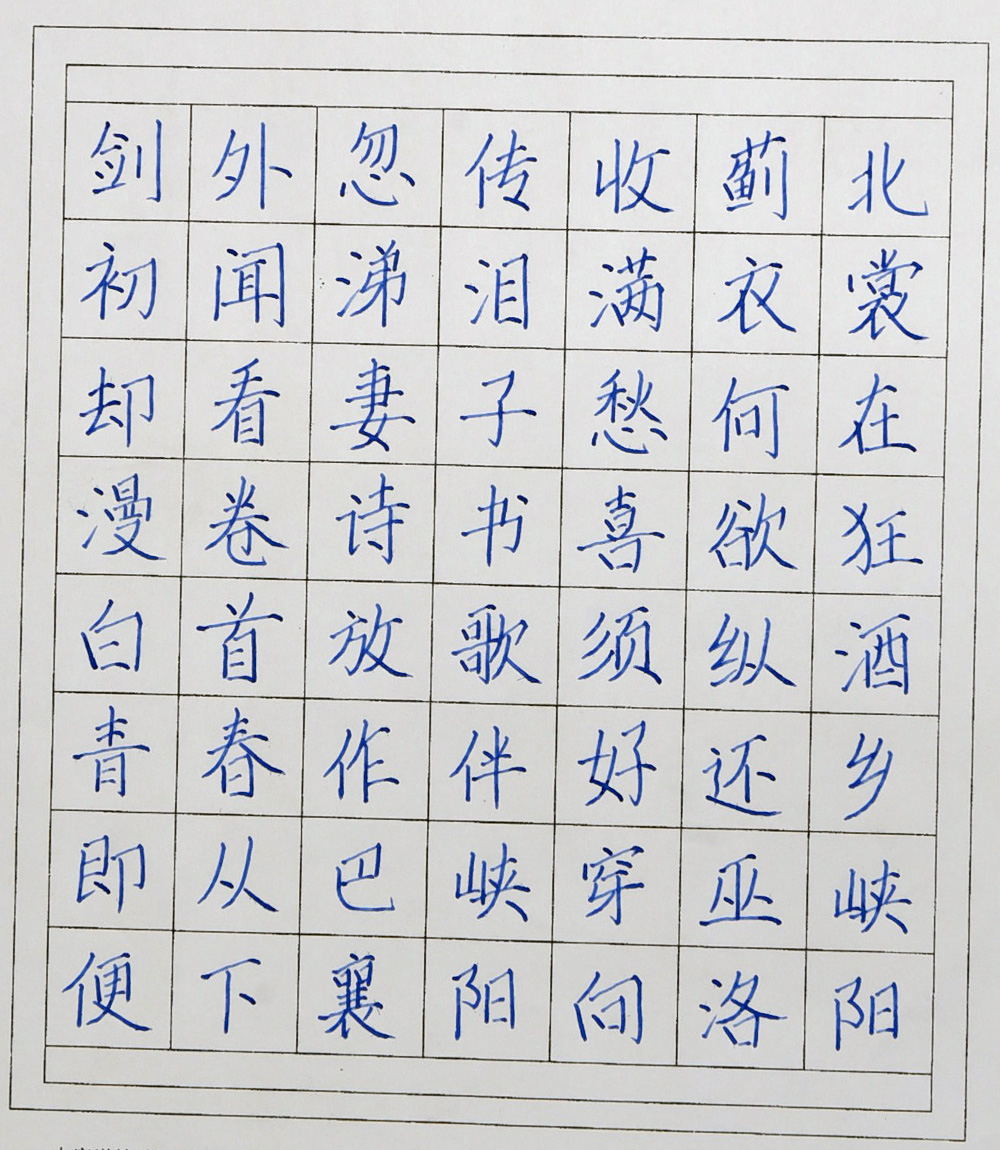 剑外忽传收蓟北
初闻涕泪满衣裳
却看妻子愁何在
漫卷诗书喜欲狂
白首放歌须纵酒
青春作伴好还乡
即从巴峡穿巫峡
便下襄阳向洛阳